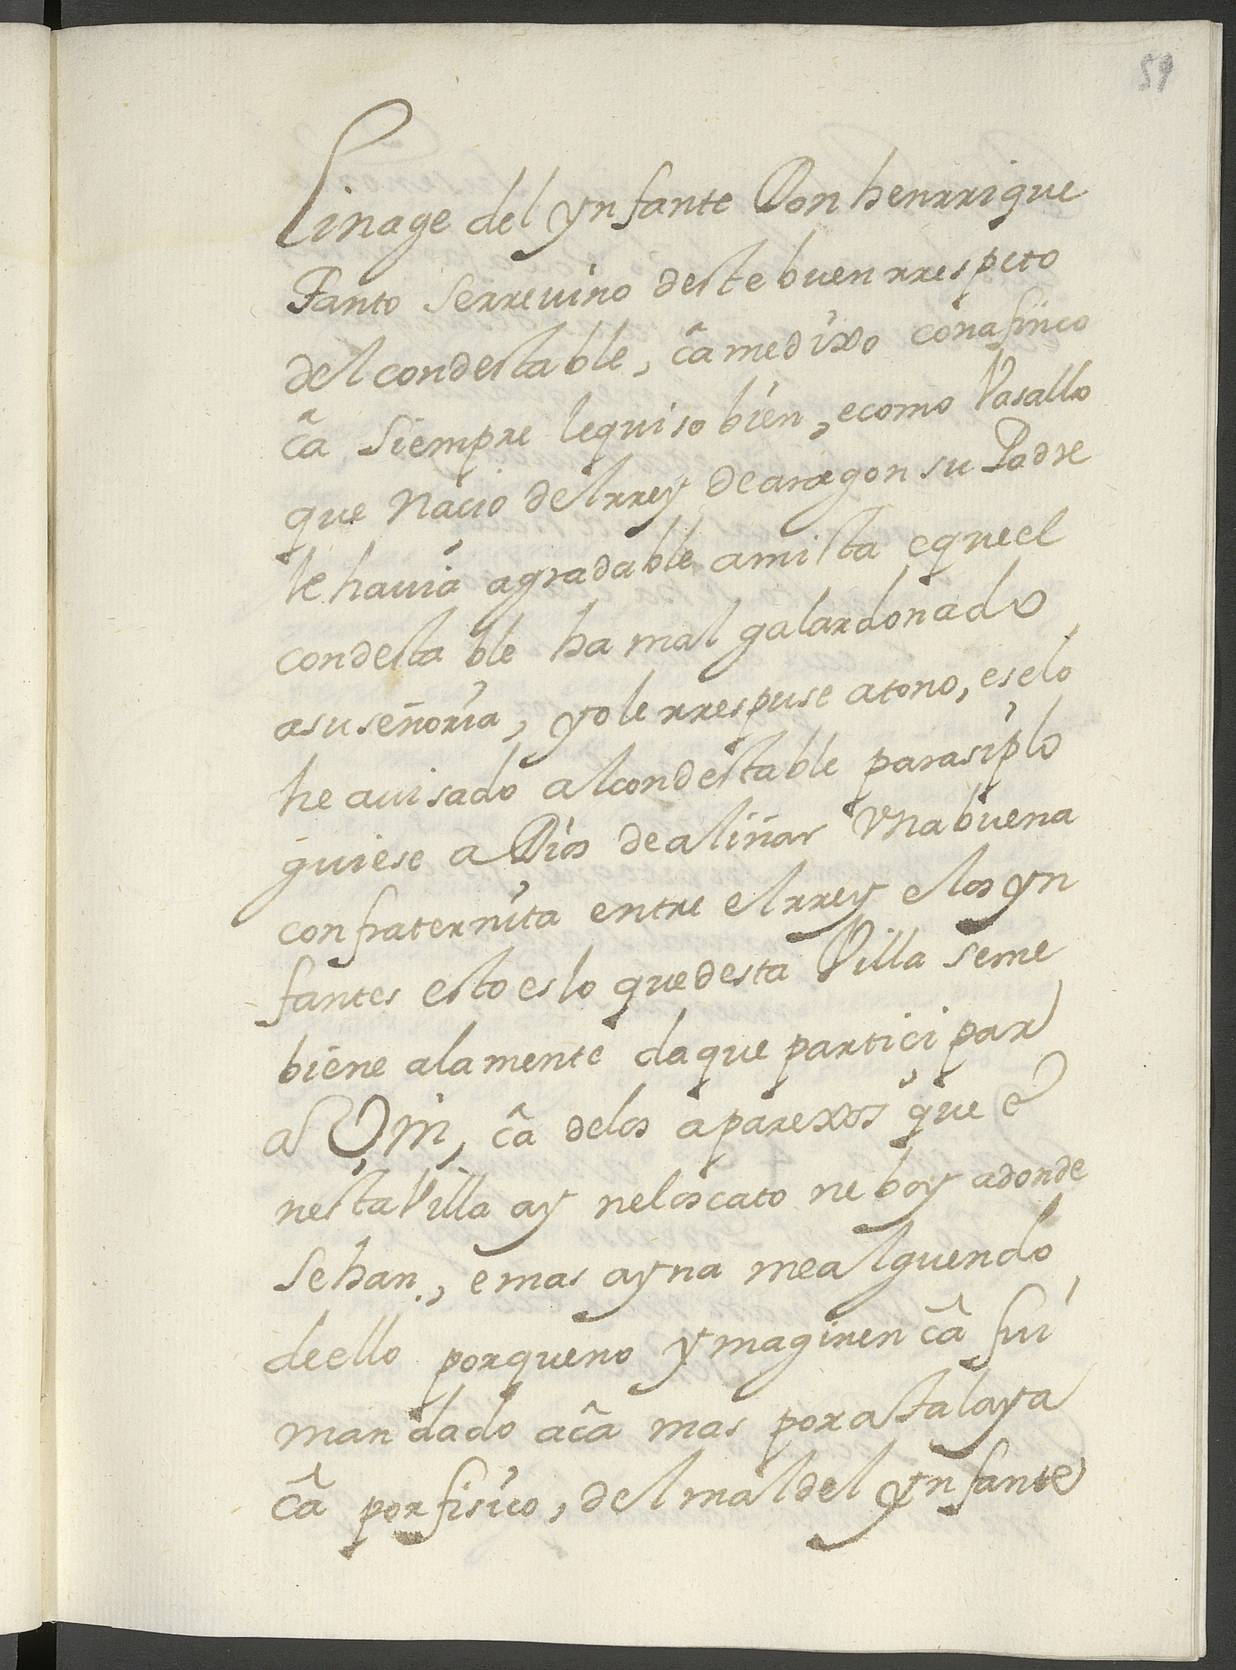 59
Linage del ynfante Don henrrique
Tanto serrevino deste buen rrespeto
del condestable, câ me dixo con afinco
câ siempre le quiso bien, e como Vasallo
que nacio del rrey de aragon su Padre
le havia agradable amista e que el
condestable ha mal galardonado
a su señoria, yo le rrespuse a tono, e selo
he avisado al condestable para si plo
guiese a Dios de aliñar vna buena
confraternita entre el rrey e los yn
fantes esto es lo que desta Villa seme
biene a la mente da que participar
a Vm, câ de los aparexos que e
nesta Villa ay ne los cato ne boy adonde
se han, e mas ayna me alguendo
de ello por que no ymaginen câ fui
mandado acâ mas por atalaya
câ por fisico, del mal del ynfante